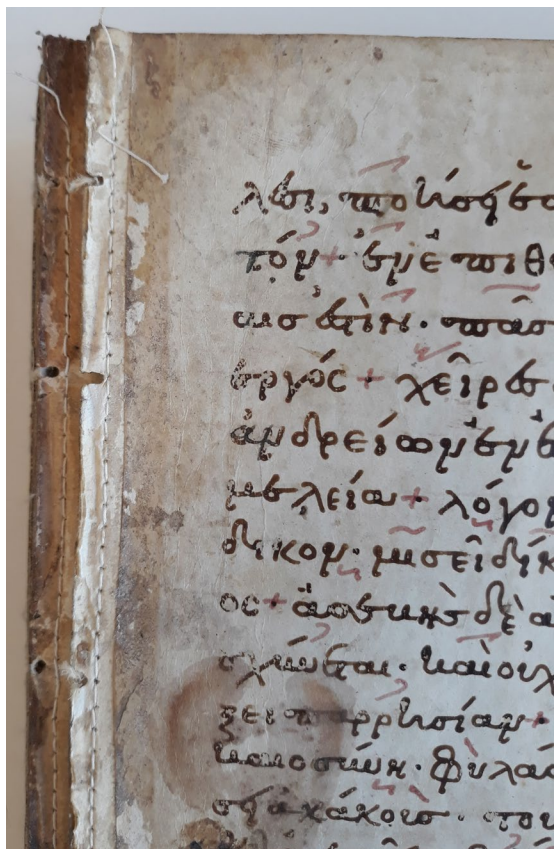 λεσι, πτοήσει ἑα
τόν + ἐν ἐπιθ
αισ ἐστὶν· πᾶσ
εργός + χεῖρεσ
ἀνδρείων ἐν ἐ
μελεία + λόγον
δικον· μισεῖ δίκ
ος + ἀσεβὴσ δὲ α
σχύνεται· καὶ οὐχ
ξει παρρησίαν +
καιοσύνη· φυλάσ
σει ἀκάκουσ· του